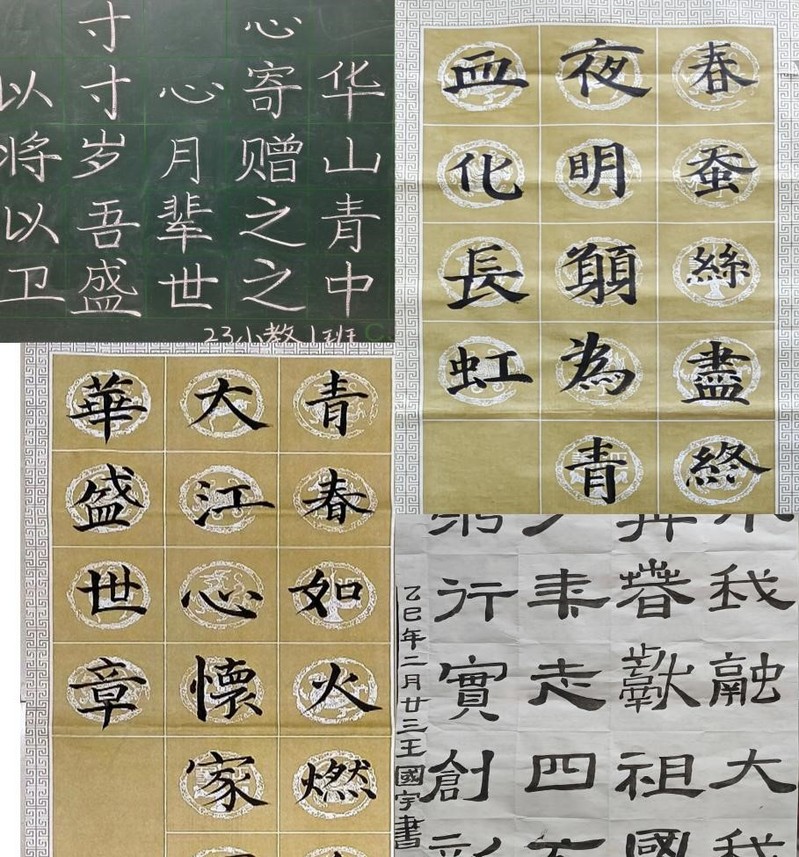 华山青中
心寄赠之之
心月辈世
寸寸岁吾盛
以将以卫
23小教1班
春蚕絲盡終
夜明願為青
血化長虹
青春如火燃
大江心懷家
華盛世章
我融大我
春獻祖國
年走四
行實創
乙巳年二月廿三王國宇書